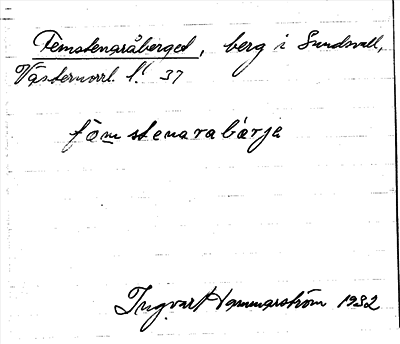 Femstensråberget, berg i Sundsvall,
Västernorrl. l. 37
fömstenarabärje
Ingvar Hammarström 1932